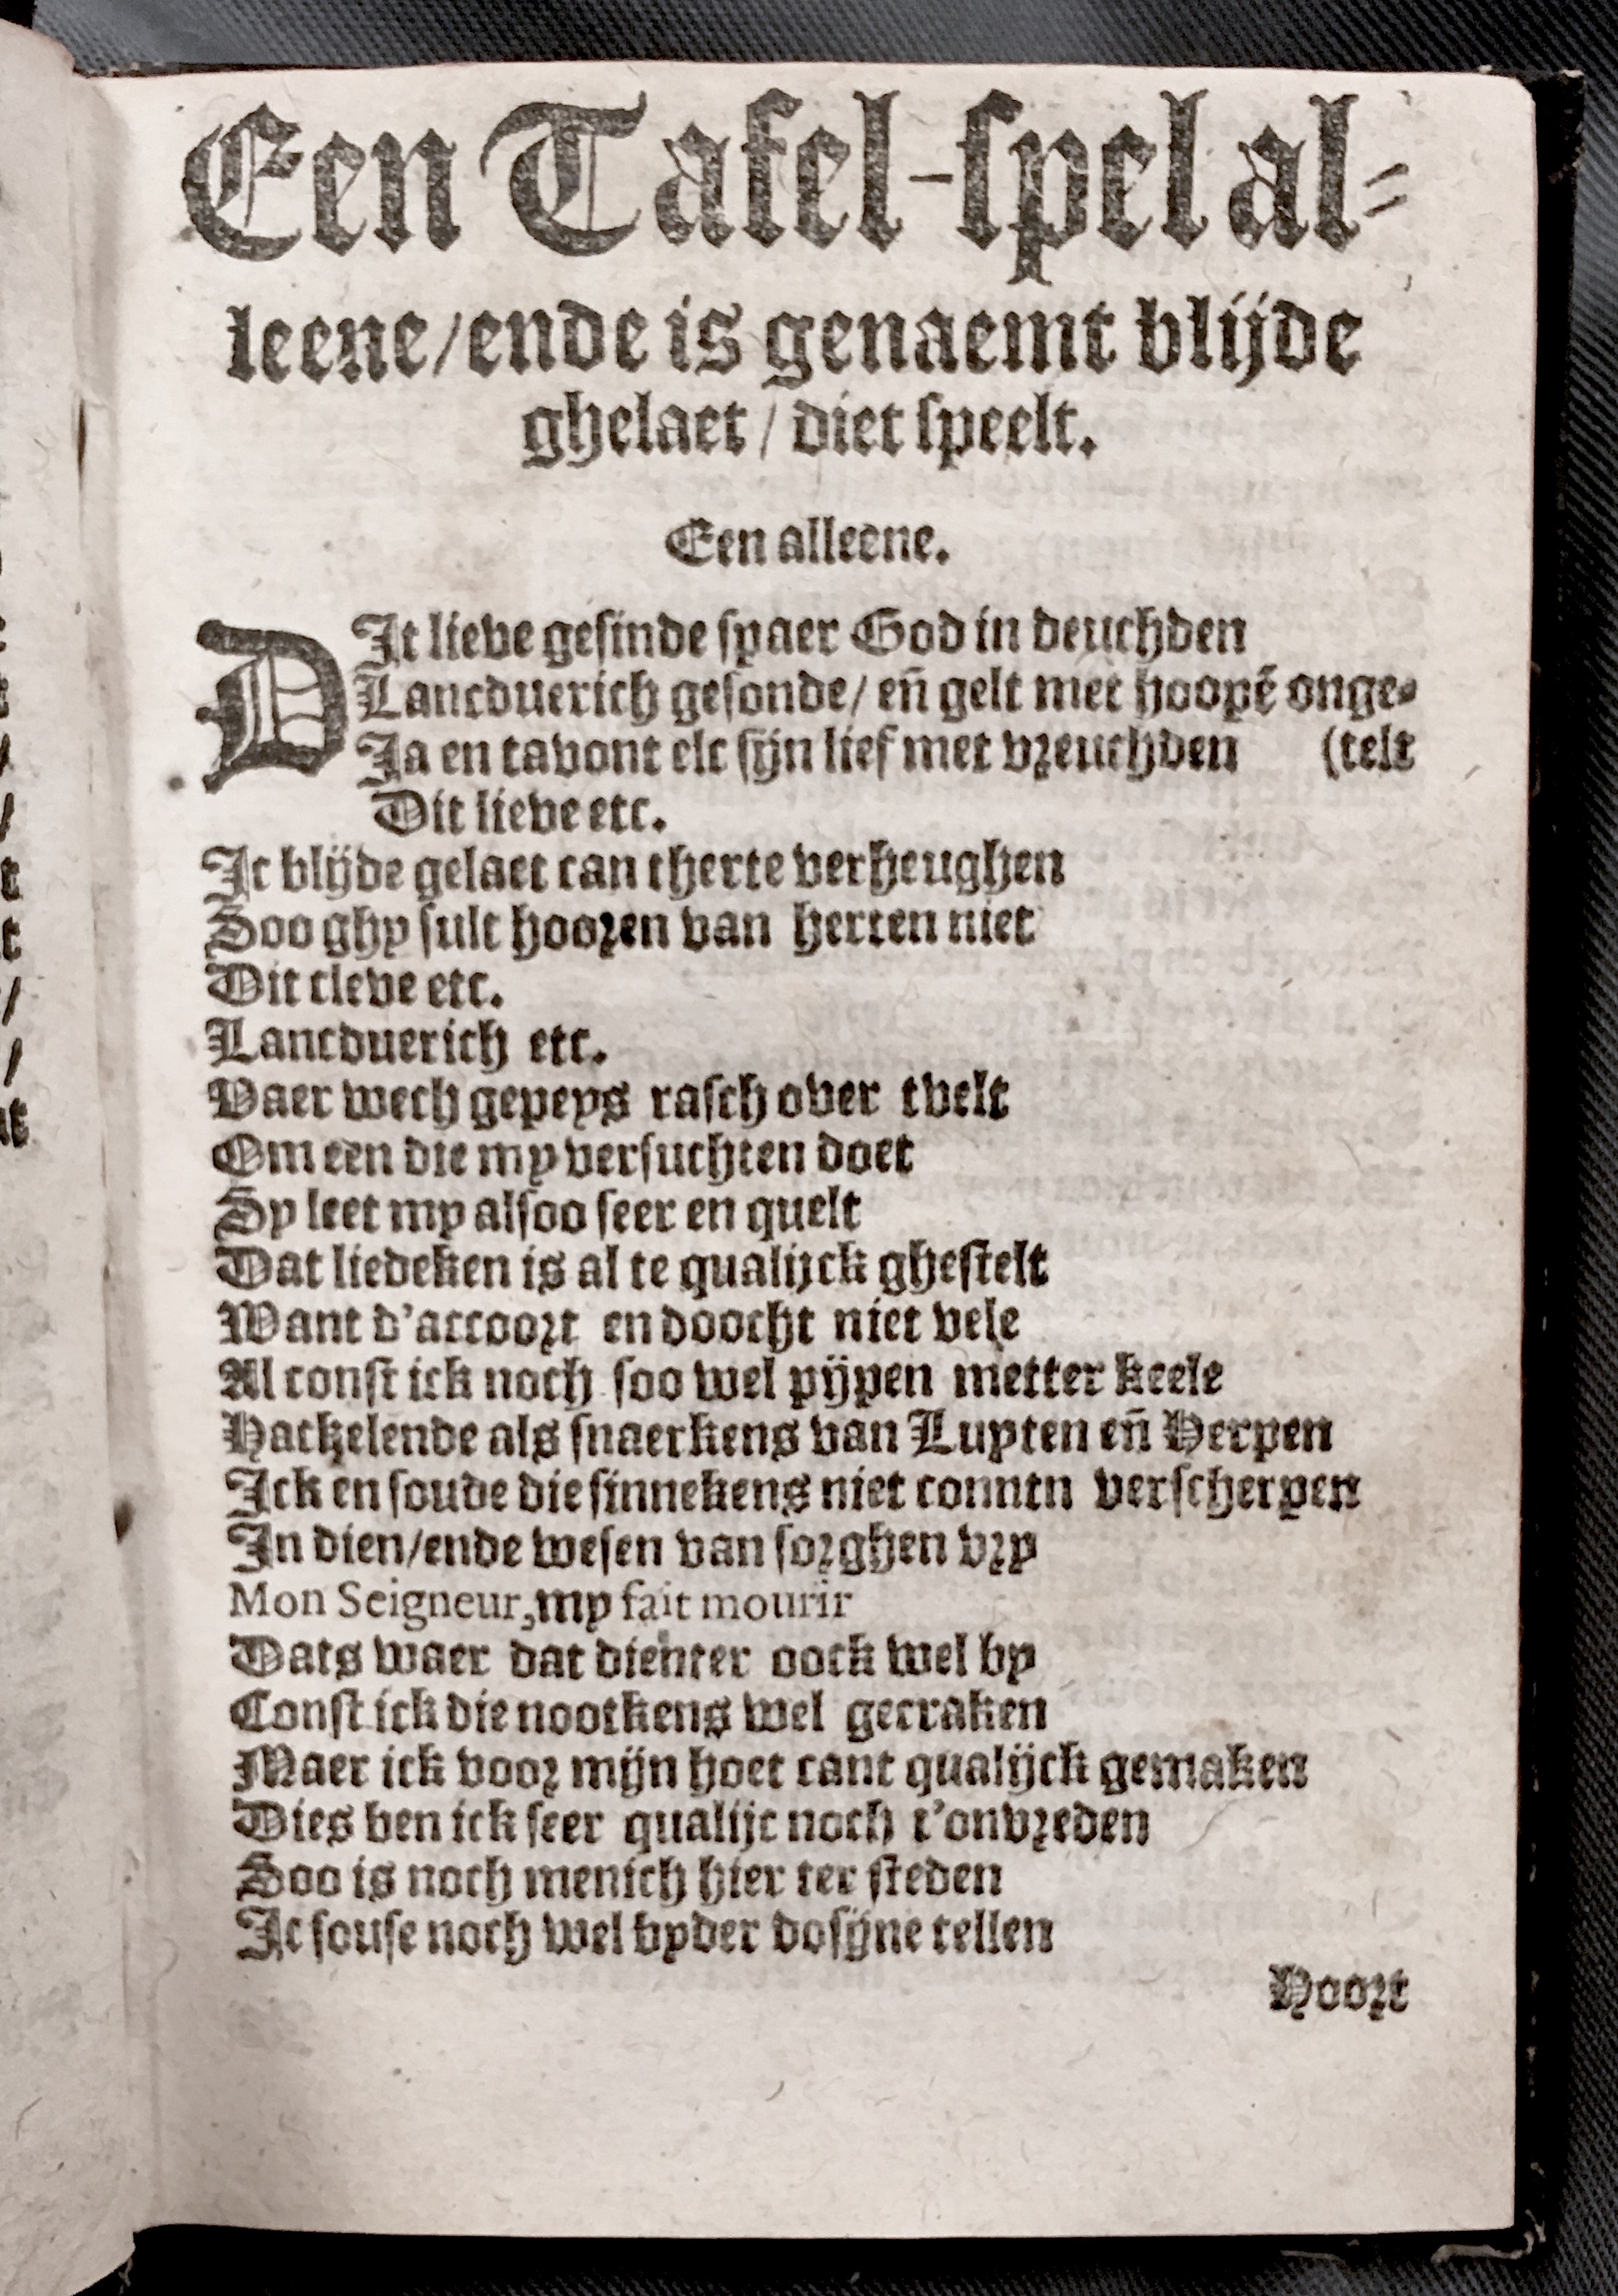 Een Tafel-spel al-
leene/ende is genaemt blijde
ghelaet / diet speelt.
Een alleene.
DIt lieve gesinde spaer God in deuchden
Lancduerich gesonde/ eñ gelt met hoopẽ onge-
Ja en tavont elc sijn lief met vreuchden (telt
Dit lieve etc.
Ic blijde gelaet can therte verheughen
Soo ghy sult hooren van herten niet
Dit cleve etc.
Lancduerich etc.
Vaer wech gepeys rasch over tvelt
Om een die my versuchten doet
Sy leet my alsoo seer en quelt
Dat liedeken is al te qualijck ghestelt
Want d'accoort en doocht niet vele
Al const ick noch soo wel pijpen metter keele
Hackelende als snaerkens van Luyten eñ Herpen
Ick en soude die sinnekens niet conntn verscherpen
In dien/ende wesen van sorghen vry
Mon Seigneur, my fait mourir
Dats waer dat dienter oock wel by
Const ick die nootkens wel gecraken
Maer ick voor mijn hoet cant qualijck gemaken
Dies ben ick seer qualijc noch t'onvreden
Soo is noch menich hier ter steden
Ic souse noch wel byder dosijne tellen
Hoort